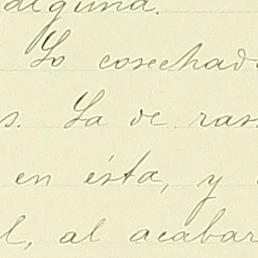 alguna.
Lo cosechad
s. La de ras
en ésta, y
l, al acabar